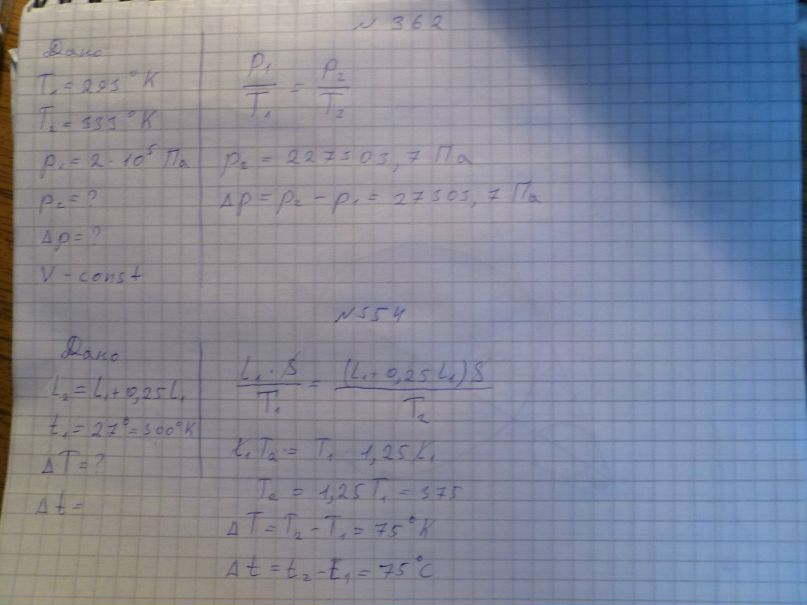 N 362
Дано
T₁ = 293°K
T₂ = 333°K
p₁ = 2 · 10⁵ Па
p₂ = ?
Δp = ?
V - const
p₁/T₁ = p₂/T₂
p₂ = 227303,7 Па
Δp = p₂ - p₁ = 27303,7 Па
N 554
Дано
L₂ = L₁ + 0,25 L₁
t₁ = 27° = 300°K
ΔT = ?
Δt =
L₁ · S/T₁ = (L₁ + 0,25 L₁) S/T₂
L₁ T₂ = T₁ · 1,25 L₁
T₂ = 1,25 T₁ = 375
ΔT = T₂ - T₁ = 75°K
Δt = t₂ - t₁ = 75°C